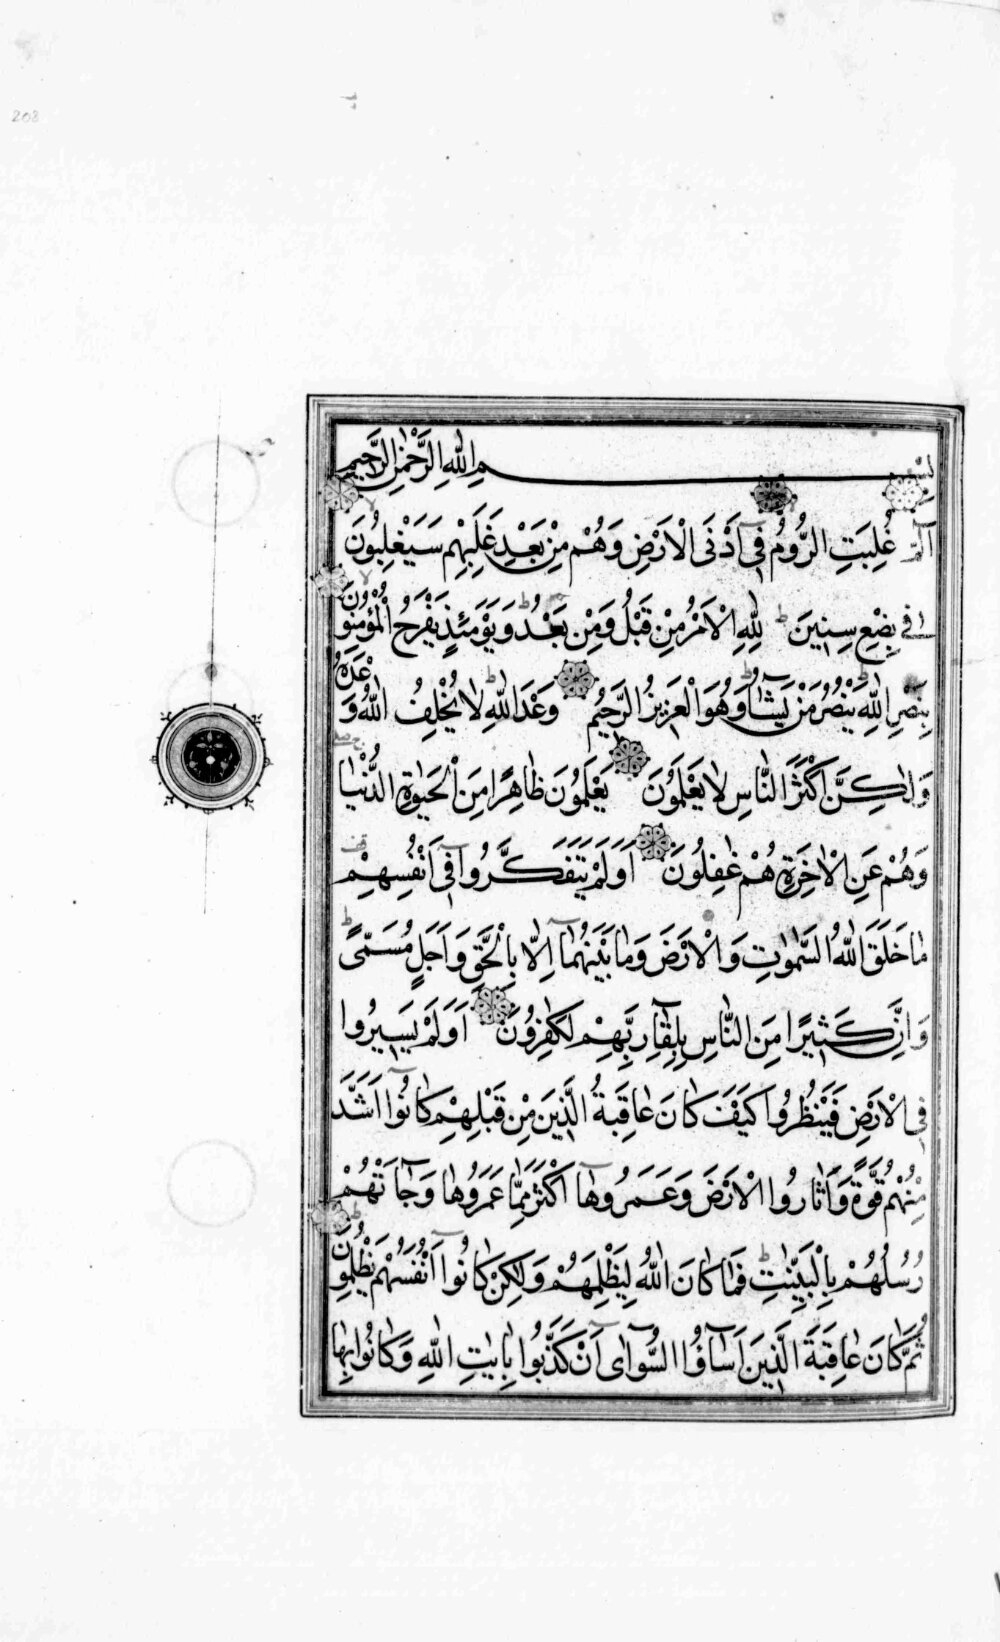 بِسْمِ اللّٰهِ الرَّحْمٰنِ الرَّحِيمِ
الٓمٓ غُلِبَتِ الرُّومُ فِىٓ اَدْنَى الْاَرْضِ وَهُمْ مِنْ بَعْدِ غَلَبِهِمْ سَيَغْلِبُونَ
فِى بِضْعِ سِنِينَ ط لِلّٰهِ الْاَمْرُ مِنْ قَبْلُ وَمِنْ بَعْدُ ط وَيَوْمَئِذٍ يَفْرَحُ الْمُؤْمِنُونَ
بِنَصْرِ اللّٰهِ ط يَنْصُرُ مَنْ يَشَآءُ ط وَهُوَ الْعَزِيزُ الرَّحِيمُ وَعْدَ اللّٰهِ ط لَا يُخْلِفُ اللّٰهُ وَعْدَهُ
وَلٰكِنَّ اَكْثَرَ النَّاسِ لَا يَعْلَمُونَ يَعْلَمُونَ ظَاهِرًا مِنَ الْحَيٰوةِ الدُّنْيَا
وَهُمْ عَنِ الْاٰخِرَةِ هُمْ غٰفِلُونَ اَوَلَمْ يَتَفَكَّرُوا فِىٓ اَنْفُسِهِمْ
مَا خَلَقَ اللّٰهُ السَّمٰوَاتِ وَالْاَرْضَ وَمَا بَيْنَهُمَآ اِلَّا بِالْحَقِّ وَاَجَلٍ مُسَمًّى ط
وَاِنَّ كَثِيرًا مِنَ النَّاسِ بِلِقَآءِ رَبِّهِمْ لَكَافِرُونَ اَوَلَمْ يَسِيرُوا
فِى الْاَرْضِ فَيَنْظُرُوا كَيْفَ كَانَ عَاقِبَةُ الَّذِينَ مِنْ قَبْلِهِمْ كَانُوٓا اَشَدَّ
مِنْهُمْ قُوَّةً وَاَثَارُوا الْاَرْضَ وَعَمَرُوهَآ اَكْثَرَ مِمَّا عَمَرُوهَا وَجَآءَتْهُمْ
رُسُلُهُمْ بِالْبَيِّنٰتِ ط فَمَا كَانَ اللّٰهُ لِيَظْلِمَهُمْ وَلٰكِنْ كَانُوٓا اَنْفُسَهُمْ يَظْلِمُونَ
ثُمَّ كَانَ عَاقِبَةَ الَّذِينَ اَسَآؤُا السُّوٓاٰى اَنْ كَذَّبُوا بِاٰيٰتِ اللّٰهِ وَكَانُوا بِهَا
208